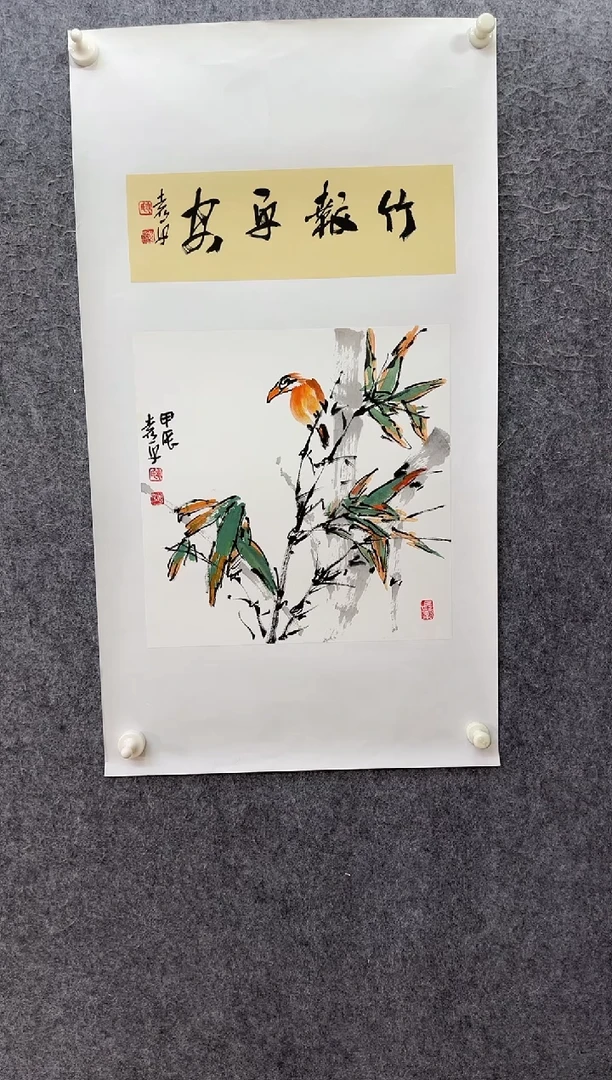 竹報平安
袁平
甲辰
袁平